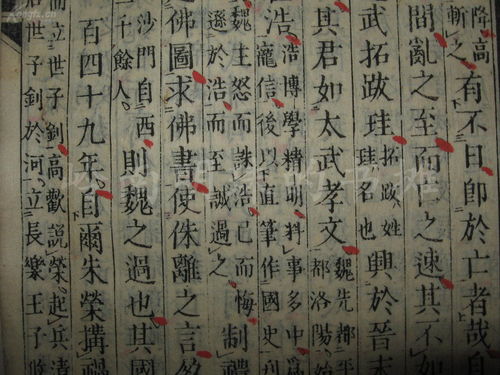 降高
斬之
有不日即於亡者哉自
間亂之至而亡之速其不如
武拓跋珪
拓跋姓
珪名也
興於晉末
其君如太武孝文
魏先都平
都洛陽始
浩
浩博學精明料事多中爲
寵信後以直筆作國史刊
魏主怒而誅浩已而悔
遜於浩而至誠過之
制禮
之佛圖求佛書使侏離之言
沙門自西
二千餘人
則魏之過也其國
百四十九年自爾朱榮搆禍
而立世子釗高歡說榮起兵清
世子釗於河立長樂王子攸